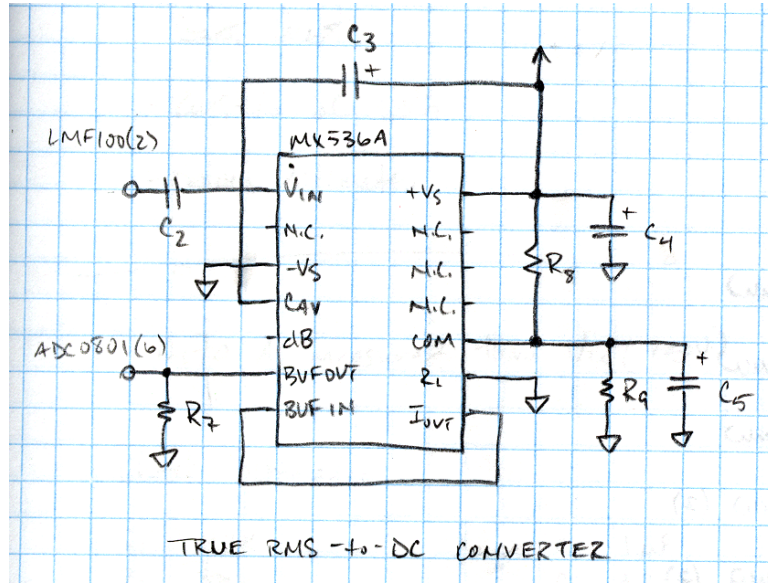 C3
+
LMF100(2)
MX536A
VIN
+VS
C2
N.C.
N.C.
+
C4
-VS
N.C.
R8
CAV
N.C.
ADC0801(6)
dB
COM
+
BUFOUT
RL
R9
C5
R7
BUF IN
IOUT
TRUE RMS-to-DC CONVERTER